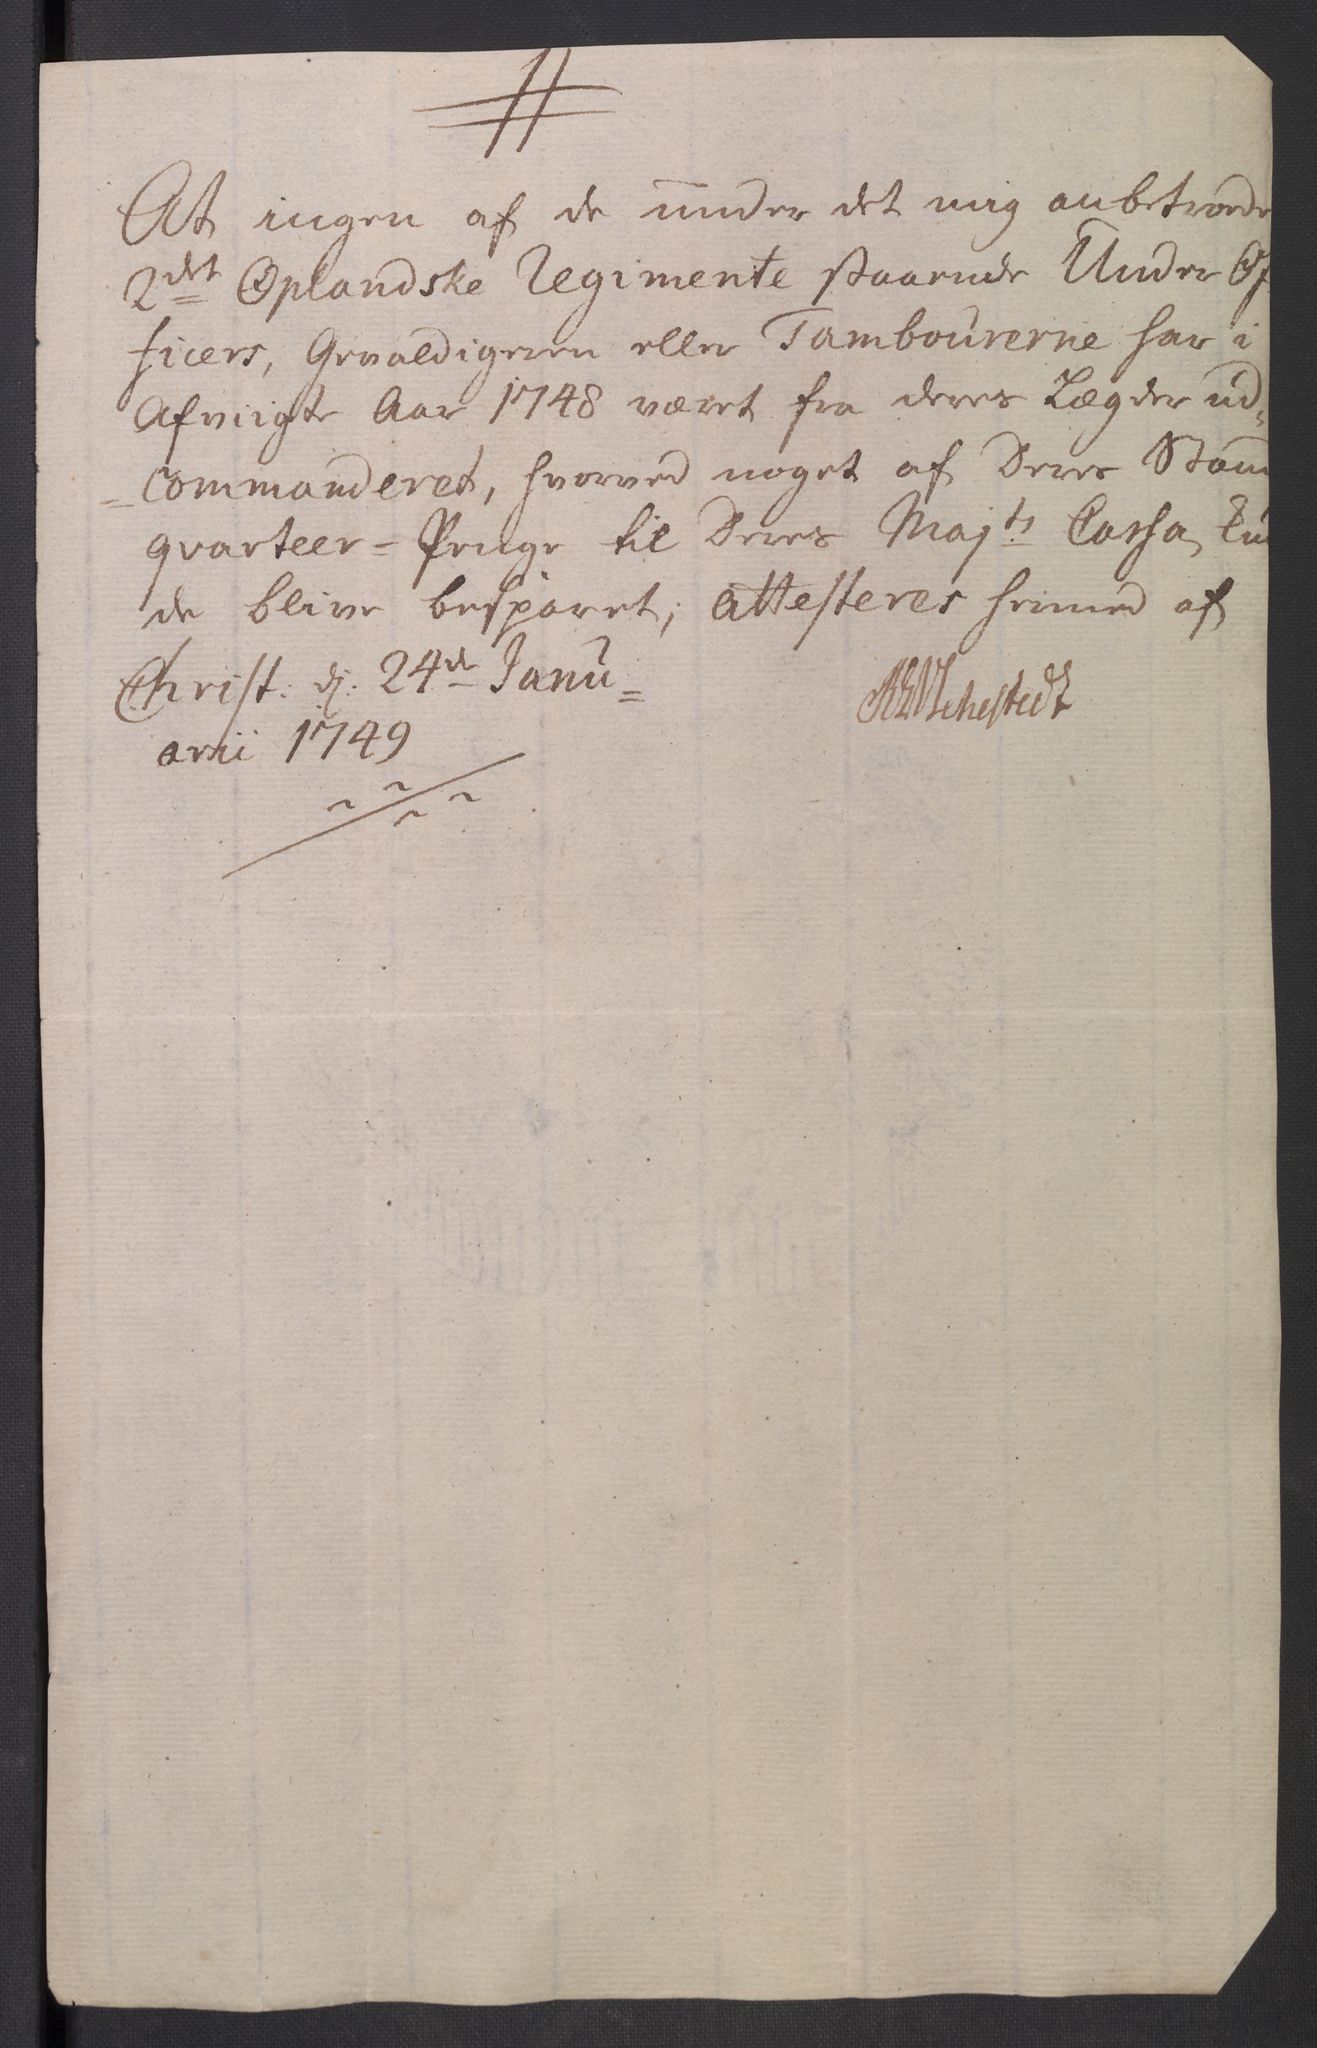 At ingen af de under det mig anbetroede
2det Oplandske Regimente staaende Under Of
ficers, Gevaldigeren eller Tambourerne har i
Afvigte Aar 1748 været fra deres Lægder ud=
=commanderet, hvorved noget af Deres
qvarteer=Penge til Deres Majts Cassa
de blive besparet, attesteres herved af
Christ. d. 24de Janu=
arii 1749